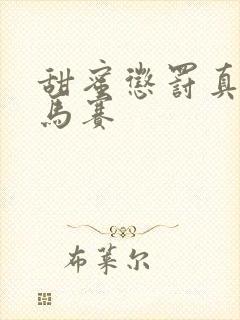 甜蜜懲罰真
馬賽
布萊尔